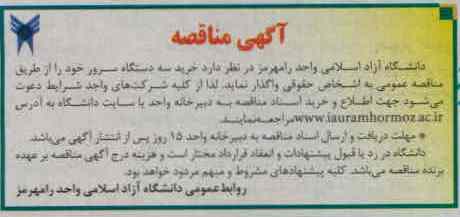 آگهی مناقصه
دانشگاه آزاد اسلامی واحد رامهرمز در نظر دارد خرید سه دستگاه سرور خود را از طریق
مناقصه عمومی به اشخاص حقوقی واگذار نماید. لذا از کلیه شرکت‌های واجد شرایط دعوت
می‌شود جهت اطلاع و خرید اسناد مناقصه به دبیرخانه واحد یا سایت دانشگاه به آدرس
www.iauramhormoz.ac.ir مراجعه‌نمایند.
* مهلت دریافت و ارسال اسناد مناقصه به دبیرخانه واحد ۱۵ روز پس از انتشار آگهی می‌باشد.
دانشگاه در رد یا قبول پیشنهادات و انعقاد قرارداد مختار است و هزینه درج آگهی مناقصه بر عهده
برنده مناقصه می‌باشد. کلیه پیشنهادهای مشروط و مبهم مردود خواهد بود.
روابط عمومی دانشگاه آزاد اسلامی واحد رامهرمز